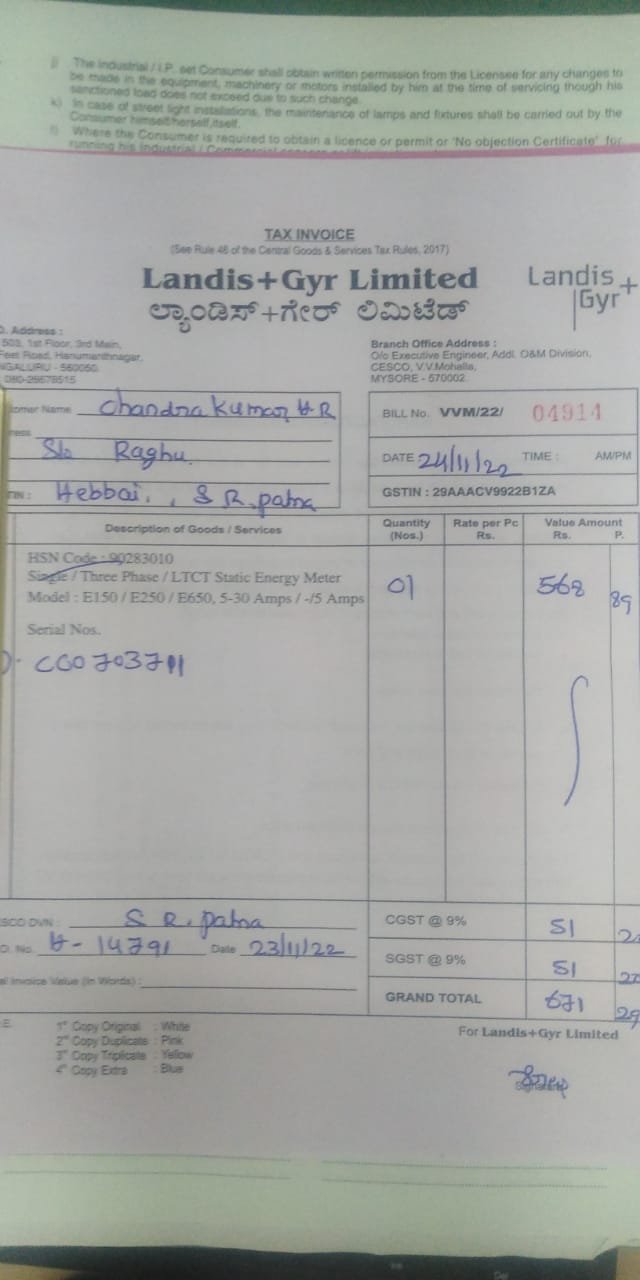 j) The Industrial / I.P. set Consumer shall obtain written permission from the Licensee for any changes to
be made in the equipment, machinery or motors installed by him at the time of servicing though his
sanctioned load does not exceed due to such change.
k) In case of street light installations, the maintenance of lamps and fixtures shall be carried out by the
Consumer himself/herself,itself.
l) Where the Consumer is required to obtain a licence or permit or 'No objection Certificate' for
running his Industrial /
TAX INVOICE
(See Rule 46 of the Central Goods & Services Tax Rules, 2017)
Landis+Gyr Limited
ಲ್ಯಾಂಡಿಸ್+ಗೇರ್ ಲಿಮಿಟೆಡ್
Landis+
Gyr
Address :
503, 1st Floor, 3rd Main,
Feet Road, Hanumanthnagar,
NGALURU - 560050
080-26679515
Branch Office Address :
O/o Executive Engineer, Addl. O&M Division,
CESCO, V.V.Mohalla,
MYSORE - 570002
omer Name Chandra Kumar H R
ress
S/o Raghu
TIN : Hebbai, , S R. patna
BILL No. VVM/22/ 04914
DATE 24/11/22 TIME : AM/PM
GSTIN : 29AAACV9922B1ZA
Description of Goods / Services Quantity (Nos.) Rate per Pc Rs. Value Amount Rs. P.
HSN Code : 90283010
Single / Three Phase / LTCT Static Energy Meter
Model : E150 / E250 / E650, 5-30 Amps / -/5 Amps 01 568 89
Serial Nos.
CC0703711
SCO DVN : S R. patna
CGST @ 9% 51
O. No. H- 14791 Date 23/11/22
SGST @ 9% 51
al Invoice Value (In Words) :
GRAND TOTAL 671 29
1st Copy Original : White
2nd Copy Duplicate : Pink
3rd Copy Triplicate : Yellow
4th Copy Extra : Blue
For Landis+Gyr Limited